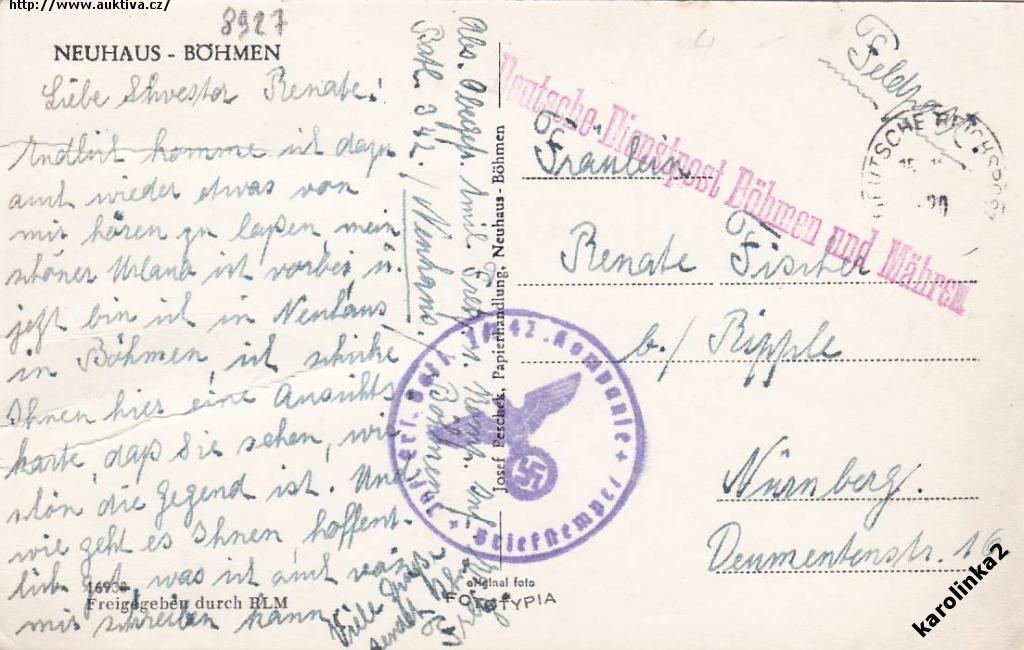 http://www.auktiva.cz/
8927
NEUHAUS - BÖHMEN
Liebe Shvester Renate!
Endlich komme ich dazu
auch wieder etwas von
mir hören zu laßen, mein
schöner Urlaub ist vorbei u.
jetzt bin ich in Neuhaus/
in Böhmen, ich schicke
Ihnen hier eine Ansichts
karte, daß Sie sehen, wie
schön die Gegend ist. Und
wie geht es Ihnen, hoffent-
lich gut, was ich auch von
mir schreiben kann.
Viele Grüße
16938
Freigegeben durch RLM
Abs. Emil
Batl. 342 / Neuhaus /
Böhmen
Josef Peschek, Papierhandlung, Neuhaus - Böhmen
original foto
FOTOTYPIA
Feldpost
DEUTSCHE REICHSPOST
Deutsche Dienstpost Böhmen und Mähren
Fräulein
Renate Fischer
b./ Ripple
Nürnberg.
Deumentenstr. 16
Kompanie
Briefstempel
karolinka2